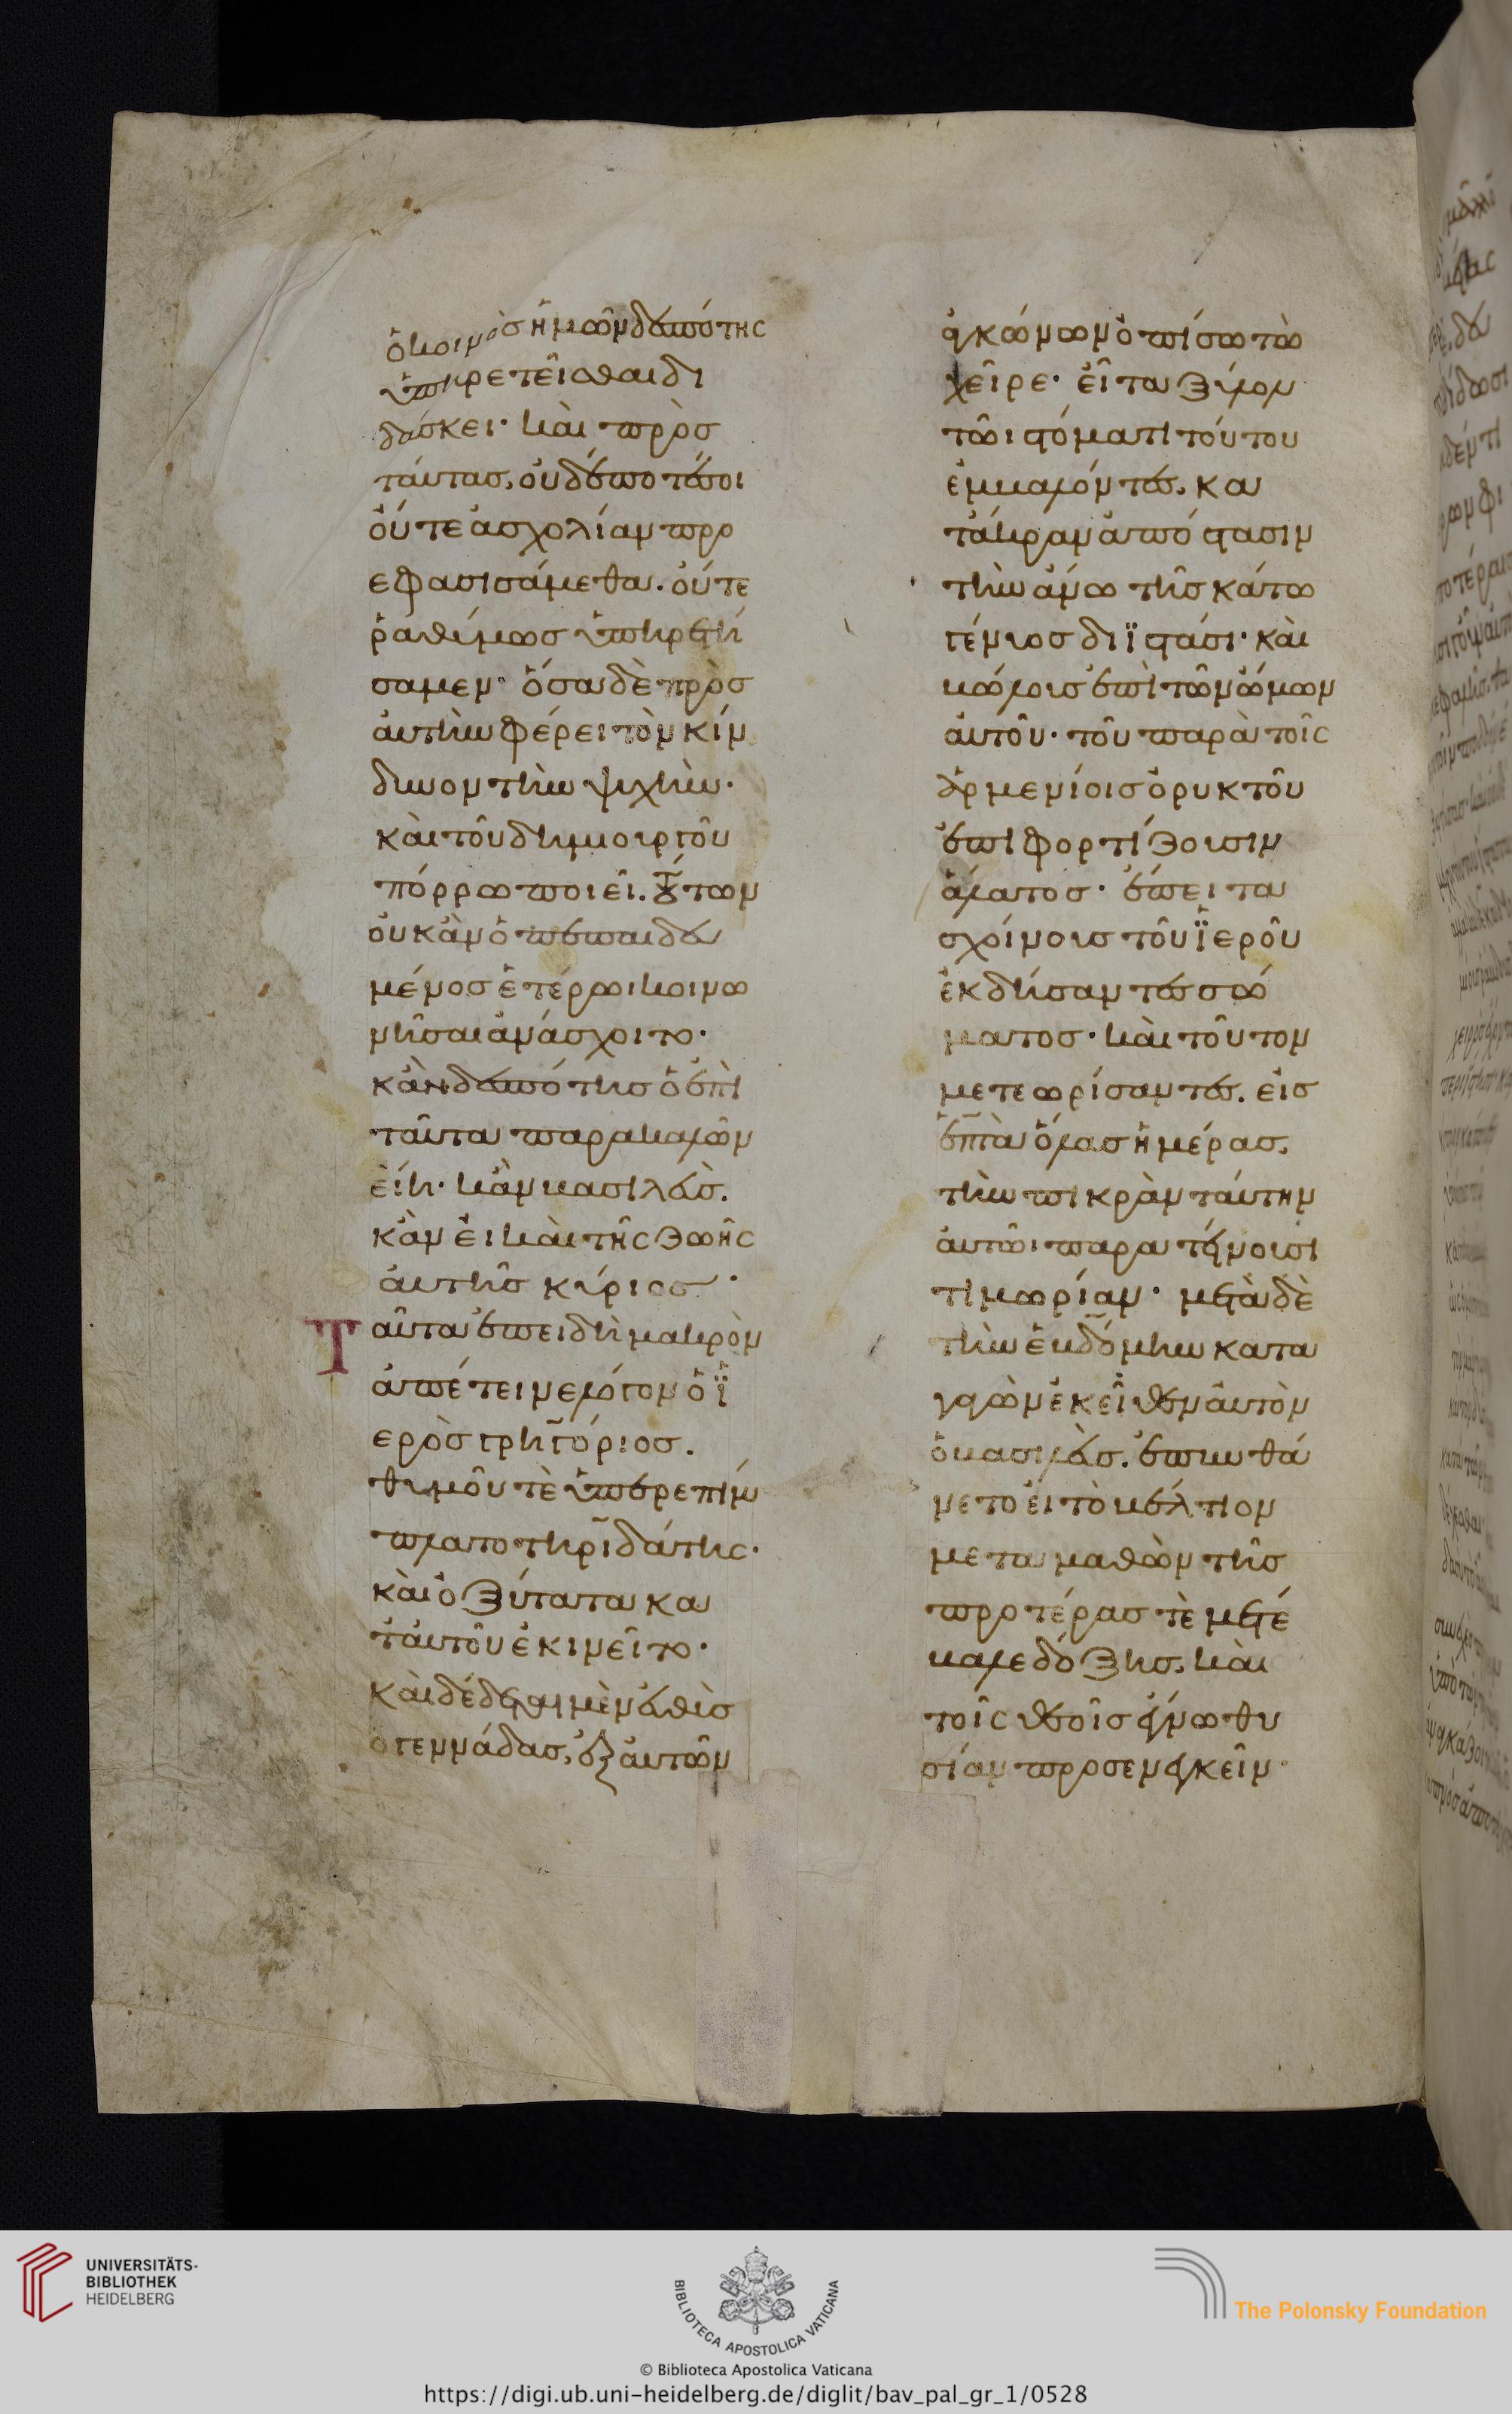 ὁ κοινὸσ ἡμῶν δεσπότης
ὑπηρετεῖσθαι δι
δάσκει· καὶ πρὸσ
ταύτασ, οὐδέποτέ σοι
οὔτε ἀσχολίαν προ
εφασισάμεθα. οὔτε
ῥαθύμωσ ὑπηρετή
σαμεν· ὅσα δὲ πρὸσ
αὐτὴν φέρει τὸν κίν
δυνον τὴν ψυχὴν·
καὶ τοῦ δημιουργοῦ
πόρρω ποιεῖ. τούτων
οὐκ ἂν ὁ πεπαιδευ
μένοσ ἑτέρωι κοινω
νῆσαι ἀνάσχοιτο·
κἂν δεσπότησ ὁ ἐπὶ
ταῦτα παρακαλῶν
εἴη· κἂν βασιλεὺσ.
κἂν εἰ καὶ τῆς ζωῆς
αὐτῆσ κύριοσ·
Ταῦτα ἐπειδὴ μακρὸν
ἀπέτεινε λόγον ὁ ἱ
ερὸσ γρηγόριοσ.
θυμοῦ τὲ ὑπερεπίμ
πλατο τηριδάτης·
καὶ ὀξύτατα κα
τ' αὐτοῦ ἐκινεῖτο·
καὶ δέδεται μὲν εὐθὺσ
ὁ γεννάδασ, ἐξ αὐτῶν
ἀγκώνων ὀπίσω τὼ
χεῖρε· εἶτα ξύλον
τῶι στόματι τούτου
ἐμβαλόντεσ, κα
τ' ἄκραν ἀπόστασιν
τὴν ἄνω τῆσ κάτω
γένυοσ διϊστᾶσι· καὶ
βώλουσ ἐπὶ τῶν ὤμων
αὐτοῦ· τοῦ παρὰ τοῖς
ἀρμενίοισ ὀρυκτοῦ
ἐπιφορτίζουσιν
ἅλατοσ· ἔπειτα
σχοίνουσ τοῦ ἱεροῦ
ἐκδήσαντεσ σώ
ματοσ· καὶ τοῦτον
μετεωρίσαντεσ. εἰσ
ἑπτὰ ὅλασ ἡμέρασ,
τὴν πικρὰν ταύτην
αὐτῶι παρατείνουσι
τιμωρίαν· μετὰ δὲ
τὴν ἑβδόμην κατα
γαγὼν ἐκεῖθεν αὐτὸν
ὁ βασιλεὺσ. ἐπυνθά
νετο εἰ τὸ βέλτιον
μεταμαθὼν τῆσ
προτέρασ τὲ μετέ
βαλε δόξησ, καὶ
τοῖς θεοῖσ ἕλοιτο θυ
σίαν προσενεγκεῖν·
UNIVERSITÄTS-
BIBLIOTHEK
HEIDELBERG
BIBLIOTECA APOSTOLICA VATICANA
The Polonsky Foundation
© Biblioteca Apostolica Vaticana
https://digi.ub.uni-heidelberg.de/diglit/bav_pal_gr_1/0528